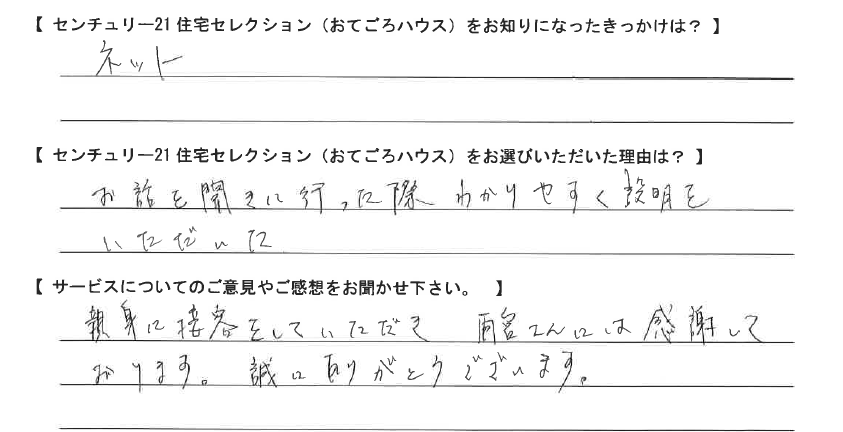 【 センチュリー21 住宅セレクション（おてごろハウス）をお知りになったきっかけは？ 】
ネット
【 センチュリー21 住宅セレクション（おてごろハウス）をお選びいただいた理由は？ 】
お話を聞きに行った際 わかりやすく説明を
いただいた
【 サービスについてのご意見やご感想をお聞かせ下さい。 】
親身に接客をしていただき 雨宮さんには感謝して
おります。誠にありがとうございます。